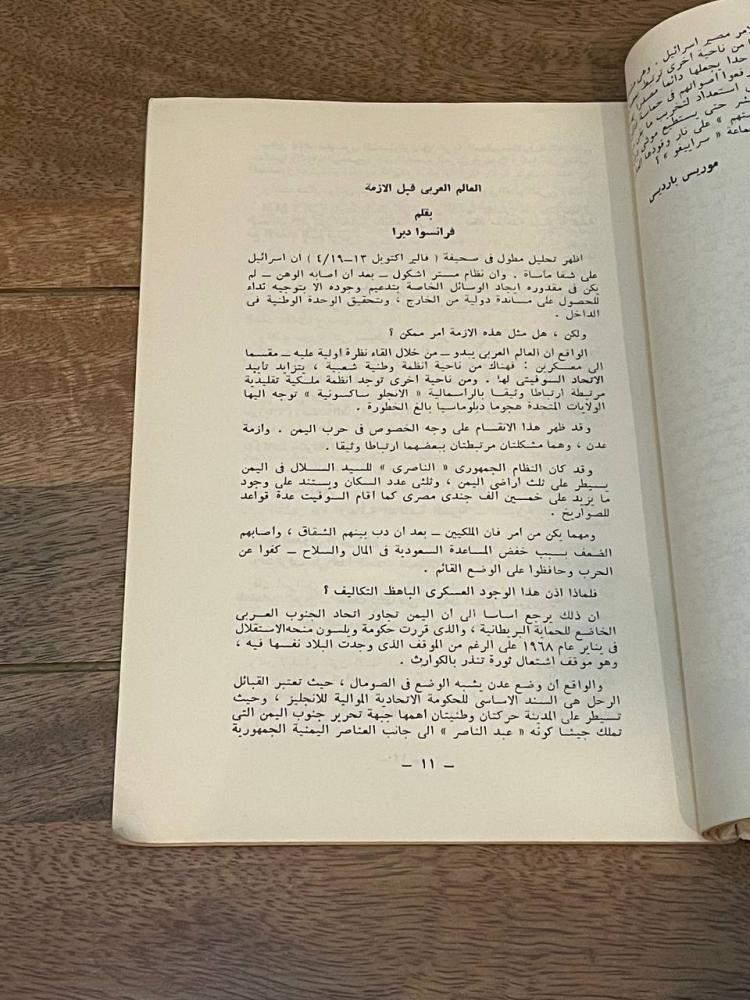 العالم العربى قبل الازمة
بقلم
فرانسوا دبرا
اظهر تحليل مطول فى صحيفة ( فالير اكتويل ١٣–٤/١٩ ) ان اسرائيل
على شفا مأساة . وان نظام مستر اشكول – بعد ان اصابه الوهن – لم
يكن فى مقدوره ايجاد الوسائل الخاصة بتدعيم وجوده الا بتوجيه نداء
للحصول على مساندة دولية من الخارج ، وتحقيق الوحدة الوطنية فى
الداخل .
ولكن ، هل مثل هذه الازمة امر ممكن ؟
الواقع ان العالم العربى يبدو – من خلال القاء نظرة اولية عليه – مقسما
الى معسكرين : فهناك من ناحية انظمة وطنية شعبية ، يتزايد تأييد
الاتحاد السوفيتى لها . ومن ناحية اخرى توجد انظمة ملكية تقليدية
مرتبطة ارتباطا وثيقا بالرأسمالية « الانجلو ساكسونية » توجه اليها
الولايات المتحدة هجوما دبلوماسيا بالغ الخطورة .
وقد ظهر هذا الانقسام على وجه الخصوص فى حرب اليمن . وازمة
عدن ، وهما مشكلتان مرتبطتان ببعضهما ارتباطا وثيقا .
وقد كان النظام الجمهورى « الناصرى » للسيد السلال فى اليمن
يسيطر على ثلث اراضى اليمن ، وثلثى عدد السكان ويستند على وجود
ما يزيد على خمسين الف جندى مصرى كما اقام السوفيت عدة قواعد
للصواريخ .
ومهما يكن من امر فان الملكيين – بعد ان دب بينهم الشقاق ، وأصابهم
الضعف بسبب خفض المساعدة السعودية فى المال والسلاح – كفوا عن
الحرب وحافظوا على الوضع القائم .
فلماذا اذن هذا الوجود العسكرى الباهظ التكاليف ؟
ان ذلك يرجع أساسا الى أن اليمن تجاور اتحاد الجنوب العربى
الخاضع للحماية البريطانية ، والذى قررت حكومة ويلسون منحه الاستقلال
فى يناير عام ١٩٦٨ على الرغم من الموقف الذى وجدت البلاد نفسها فيه ،
وهو موقف اشتعال ثورة تنذر بالكوارث .
والواقع أن وضع عدن يشبه الوضع فى الصومال ، حيث تعتبر القبائل
الرحل هى السند الاساسى للحكومة الاتحادية الموالية للانجليز ، وحيث
تسيطر على المدينة حركتان وطنيتان أهمها جبهة تحرير جنوب اليمن التى
تملك جيشا كونه « عبد الناصر » الى جانب العناصر اليمنية الجمهورية
– ١١ –
مصير اسرائيل .
من ناحية اخرى
حدا يجعلها دائما
أصواتهم فى حماسة
استعداد لتخريب ما
حتى يستطيع
» على نار وقودها
« سراييفو » !
موريس بارديس